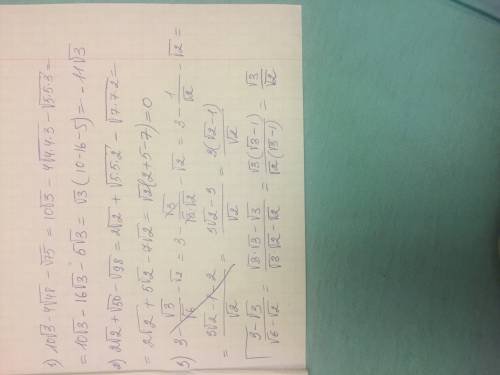 1) 10√3 - 4√48 - √75 = 10√3 - 4√4·4·3 - √5·5·3 =
= 10√3 - 16√3 - 5√3 = √3 (10-16-5) = -11√3
2) 2√2 + √50 - √98 = 2√2 + √5·5·2 - √7·7·2 =
= 2√2 + 5√2 - 7√2 = √2(2+5-7) = 0
3) 3 - √3/√6 - √2 = 3 - √3/√3·√2 - √2 = 3 - 1/√2 - √2 =
= 3√2-1-2/√2 = 3√2-3/√2 = 3(√2-1)/√2
3-√3/√6-√2 = √3·√3-√3/√3·√2-√2 = √3(√3-1)/√2(√3-1) = √3/√2